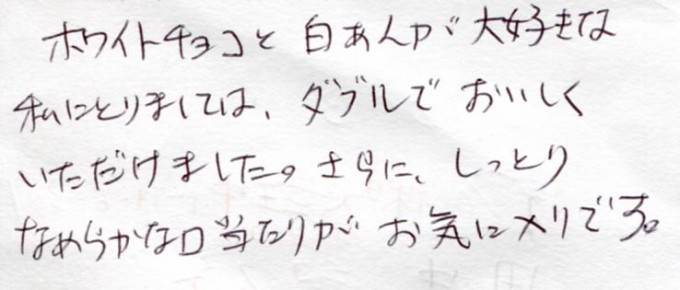 ホワイトチョコと 白あんが 大好きな
私にとりましては、ダブルで おいしく
いただけました。さらに、しっとり
なめらかな口当たりが お気に入りです。